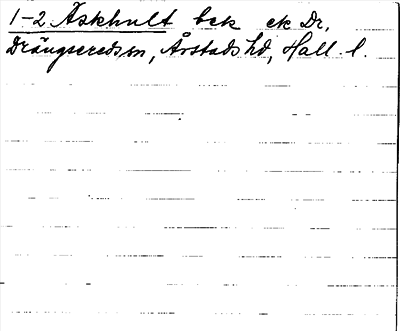 1-2 Äskhult bek ek Dr,
Drängsereds sn, Årstads hd, Hall. l.